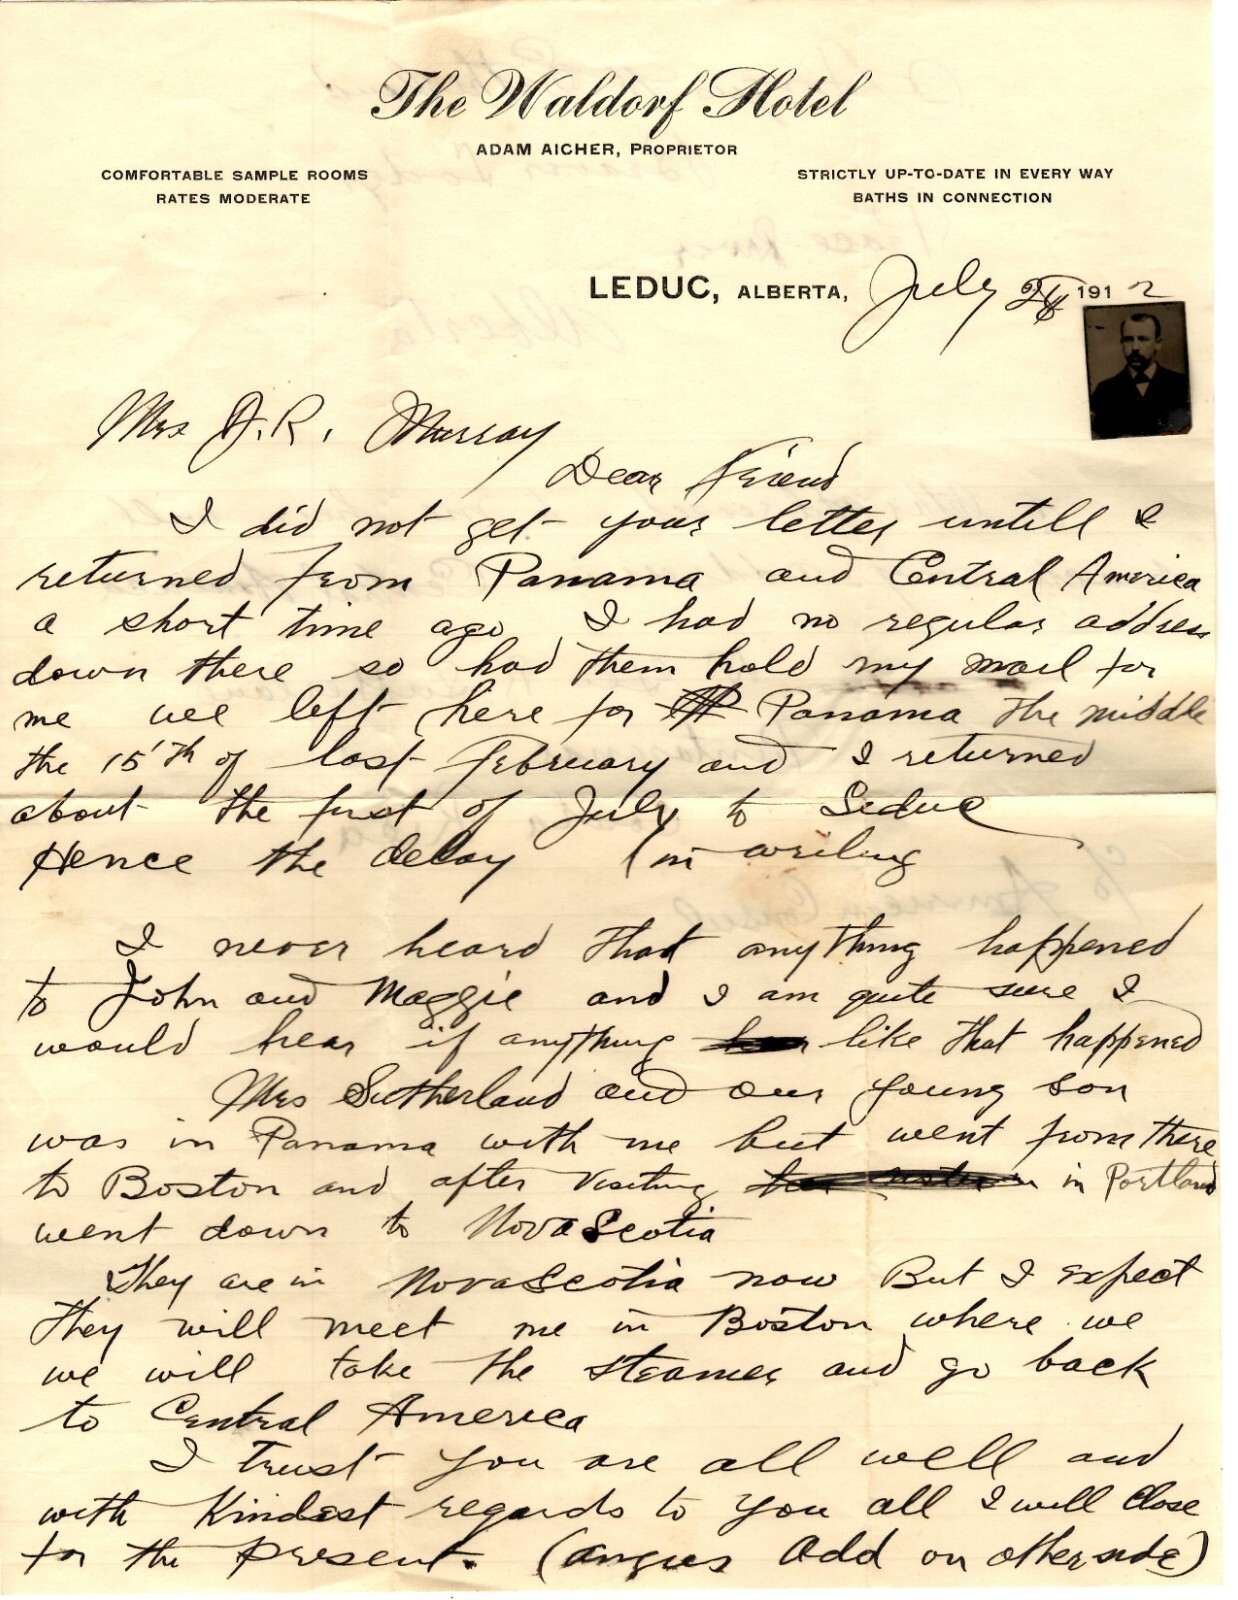 The Waldorf Hotel
ADAM AICHER, PROPRIETOR
COMFORTABLE SAMPLE ROOMS
RATES MODERATE
STRICTLY UP-TO-DATE IN EVERY WAY
BATHS IN CONNECTION
LEDUC, ALBERTA, July 1912
Mrs J. R. Murray
Dear Friend
I did not get your letter untill I
returned from Panama and Central America
a short time ago I had no regular address
down there so had them hold my mail for
me wee left here for Panama the middle
the 15th of last February and I returned
about the first of July to Leduc
Hence the delay in writing
I never heard that anything happened
to John and Maggie and I am quite sure I
would hear if anything like that happened
Mrs Sutherland and our young son
was in Panama with me but went from there
to Boston and after visiting in Portland
went down to Nova Scotia
They are in Nova Scotia now But I expect
they will meet me in Boston where we
we will take the steamer and go back
to Central America
I trust you are all well and
with Kindest regards to you all I will close
for the present. (angus Add on other side)